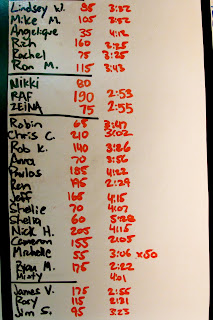 Lindsey W. 85 3:52
Mike M. 105 3:52
Angelique 35 4:12
Rich 160 3:25
Rachel 75 3:25
Ron M. 115 3:43
Nikki 80
RAF 190 2:53
ZEINA 75 2:55
Robin 65 3:47
Chris C. 210 3:02
Rob K. 140 3:26
Anna 70 3:56
Pavlos 185 4:22
Ren 195 2:29
Jeff 165 4:15
Shellie 70 4:07
Stella 60
Nick H. 205 4:15
Cameron 155 2:05
Michelle 55 3:06 x50
Ryan M. 175 2:22
Minty 4:01
James V. 175 2:56
Roxy 115 2:31
Jim S. 95 3:23